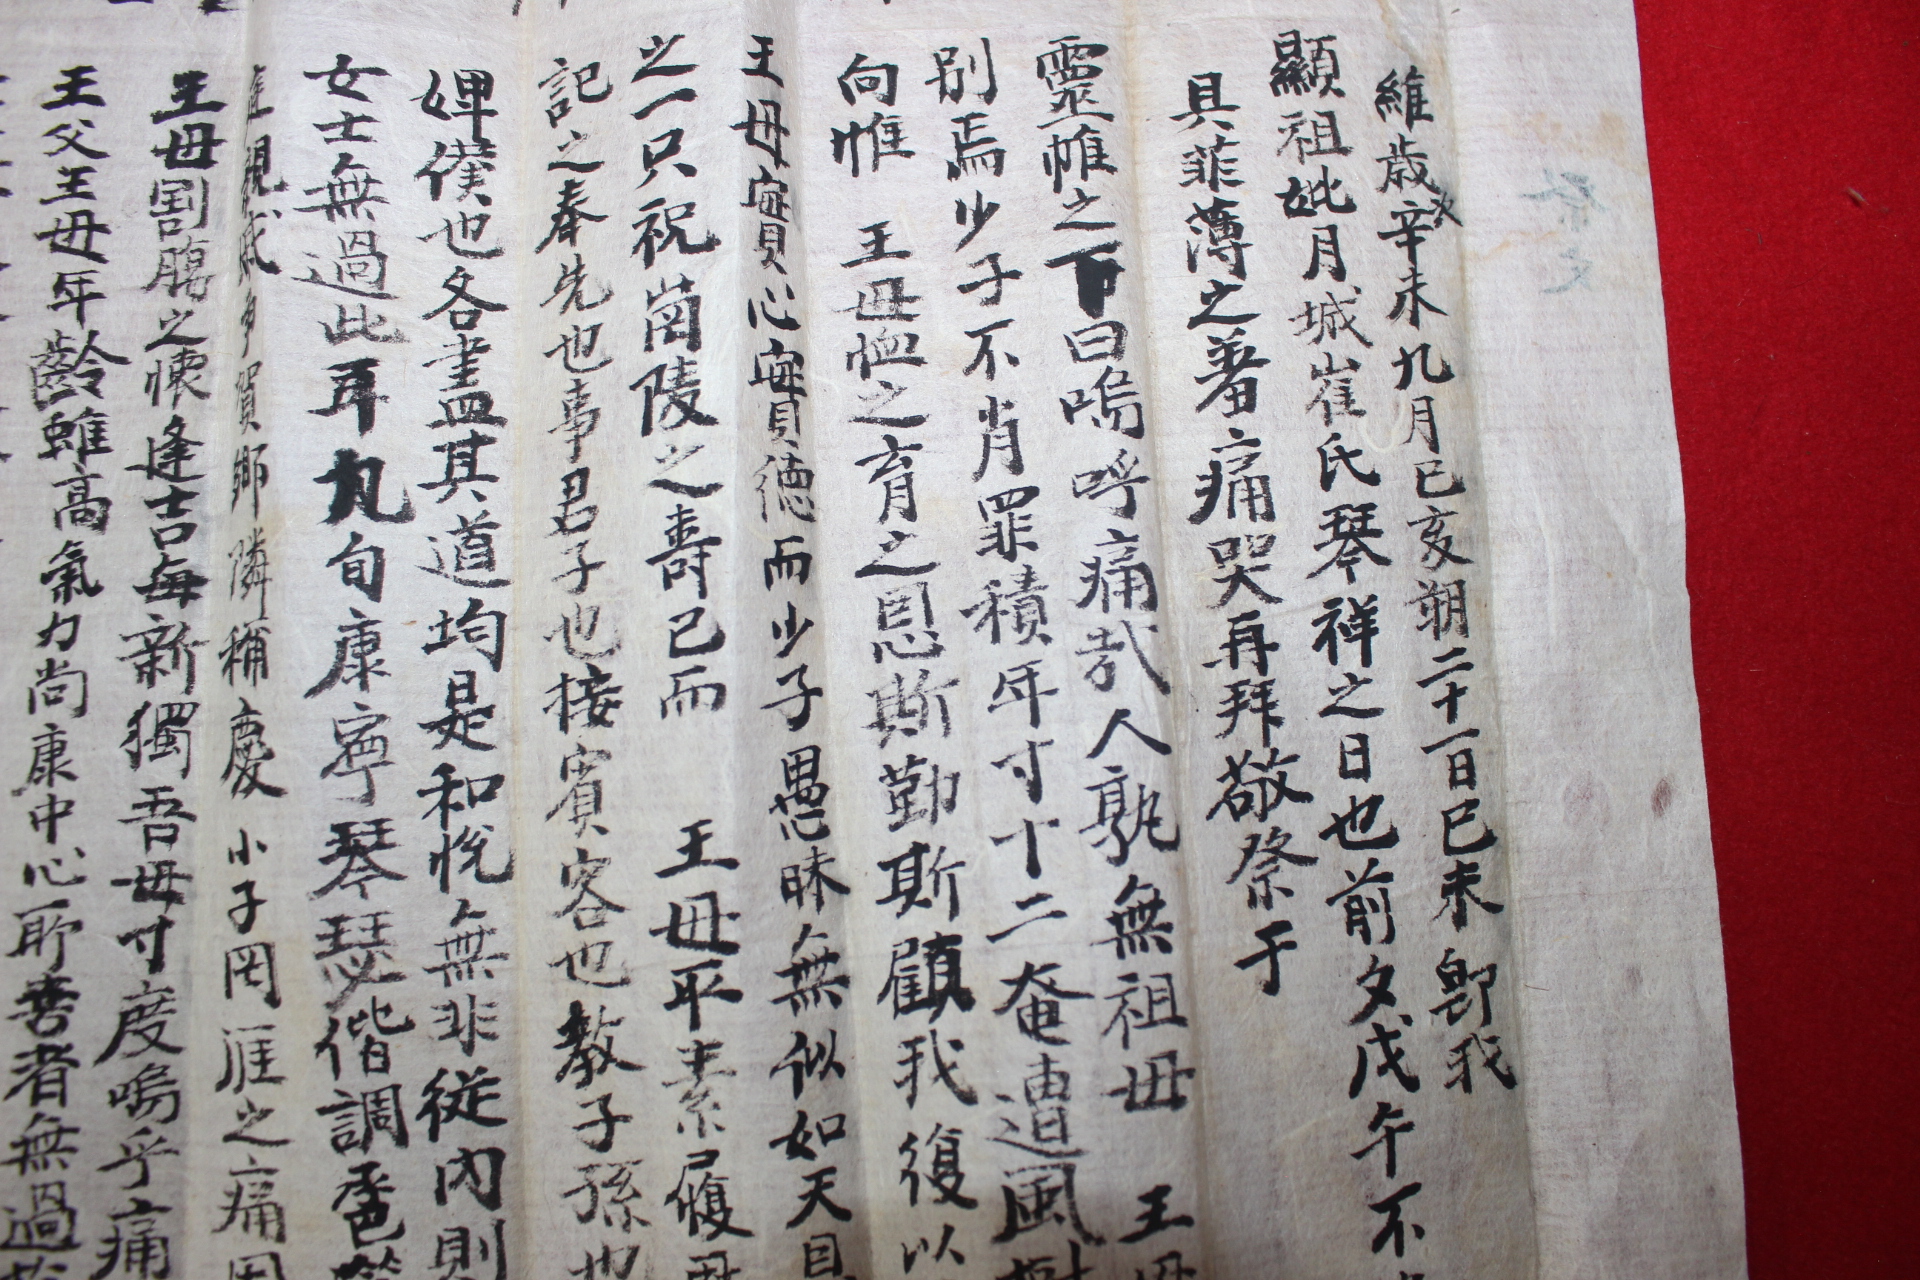 祭文
維歲次辛未九月己亥朔二十一日己未卽我
顯祖妣月城崔氏琴祥之日也前夕戊午不
具菲薄之著痛哭再拜敬祭于
靈帷之下曰嗚呼痛哉人孰無祖母 王母
別焉少子不肖罪積年寸十二奄遭風樹
向惟 王母恤之育之恩斯勤斯顧我復以
王母實心實德而少子愚昧無似如天
之一只祝岡陵之壽已而 王母平素履
記之奉先也事君子也接賓客也教子孫也
婢僕也各盡其道均是和悅無非從內則
女士無過此耳九旬康寧琴瑟偕調
賀鄉隣稱慶小子罔涯之痛罔
王母割腸之懷逢吉每新獨吾母寸度嗚乎痛
王父王母年齡雖高氣力尚康中心所善者無過於